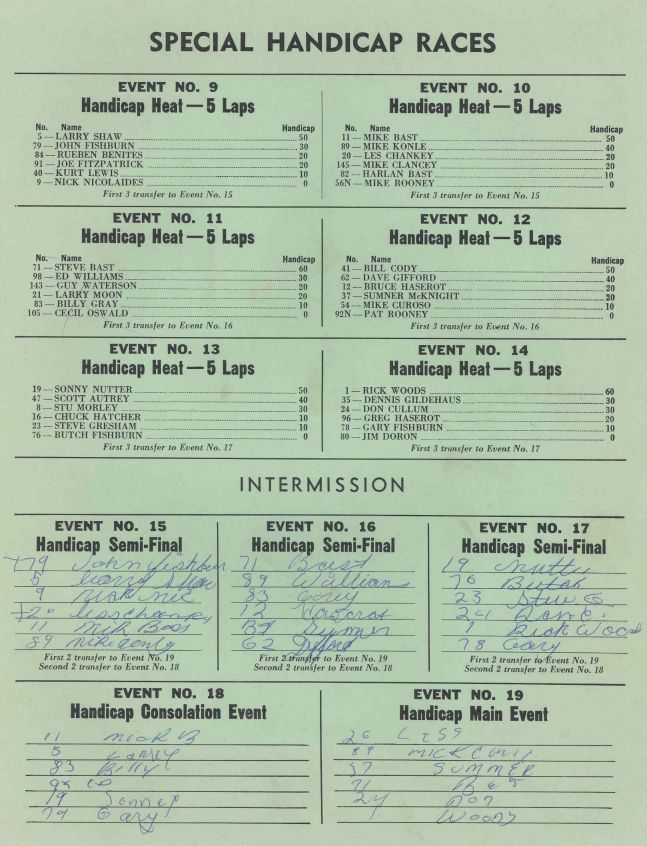 SPECIAL HANDICAP RACES
EVENT NO. 9
Handicap Heat — 5 Laps
No. Name Handicap
5 — LARRY SHAW 50
79 — JOHN FISHBURN 30
84 — RUEBEN BENITES 20
91 — JOE FITZPATRICK 20
40 — KURT LEWIS 10
9 — NICK NICOLAIDES 0
First 3 transfer to Event No. 15
EVENT NO. 10
Handicap Heat — 5 Laps
No. Name Handicap
11 — MIKE BAST 50
89 — MIKE KONLE 40
20 — LES CHANKEY 20
145 — MIKE CLANCEY 20
82 — HARLAN BAST 10
56N — MIKE ROONEY 0
First 3 transfer to Event No. 15
EVENT NO. 11
Handicap Heat — 5 Laps
No. Name Handicap
71 — STEVE BAST 60
98 — ED WILLIAMS 30
143 — GUY WATERSON 20
21 — LARRY MOON 20
83 — BILLY GRAY 10
105 — CECIL OSWALD 0
First 3 transfer to Event No. 16
EVENT NO. 12
Handicap Heat — 5 Laps
No. Name Handicap
41 — BILL CODY 50
62 — DAVE GIFFORD 40
12 — BRUCE HASEROT 20
37 — SUMNER McKNIGHT 20
54 — MIKE CUROSO 10
92N — PAT ROONEY 0
First 3 transfer to Event No. 16
EVENT NO. 13
Handicap Heat — 5 Laps
19 — SONNY NUTTER 50
47 — SCOTT AUTREY 40
8 — STU MORLEY 30
16 — CHUCK HATCHER 10
23 — STEVE GRESHAM 10
76 — BUTCH FISHBURN 0
First 3 transfer to Event No. 17
EVENT NO. 14
Handicap Heat — 5 Laps
1 — RICK WOODS 60
35 — DENNIS GILDEHAUS 30
24 — DON CULLUM 30
96 — GREG HASEROT 20
78 — GARY FISHBURN 10
80 — JIM DORON 0
First 3 transfer to Event No. 17
INTERMISSION
EVENT NO. 15
Handicap Semi-Final
79 John Fishburn
5 Larry Shaw
9
11
89
First 2 transfer to Event No. 19
Second 2 transfer to Event No. 18
EVENT NO. 16
Handicap Semi-Final
71 Bast
89 Williams
83
12
62
First 2 transfer to Event No. 19
Second 2 transfer to Event No. 18
EVENT NO. 17
Handicap Semi-Final
19
76 Butch
23
24
1 Rick Woods
78 Gary
First 2 transfer to Event No. 19
Second 2 transfer to Event No. 18
EVENT NO. 18
Handicap Consolation Event
11 Mick B
5 Larry
83 Billy
19
79 Gary
EVENT NO. 19
Handicap Main Event
LESS
89
37 SUMMER
71
24 DON
WOODS